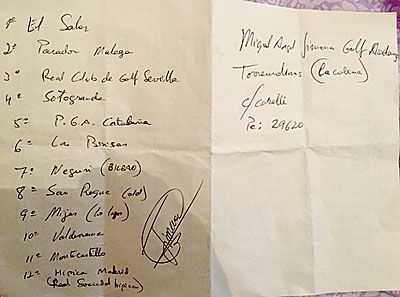 1º El Saler
2º Parador Malaga
3º Real Club de Golf Sevilla
4º Sotogrande
5º P.G.A. Cataluña
6º Las Brisas
7º Neguri (BILBAO)
8º San Roque (old)
9º Mijas (Los lagos)
10º Valderrama
11º Montecastillo
12º Hipica Madrid
(Real Sociedad Hipica)
Miguel Angel Jimenez Golf Academy
Torremolinos (La colina)
c/
Pc: 29620